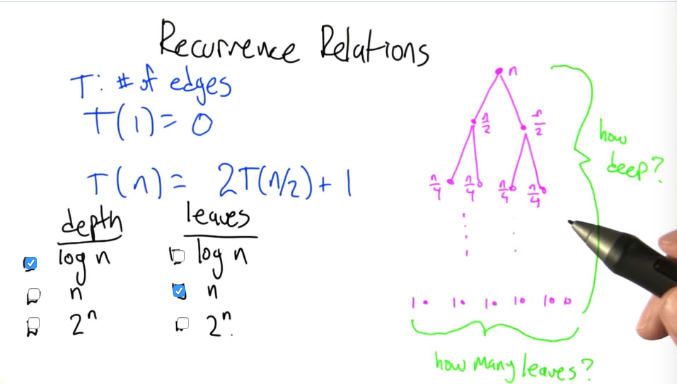 Recurrence Relations
T: # of edges
T(1) = 0
T(n) = 2T(n/2) + 1
depth leaves
log n log n
n n
2^n 2^n
n
n/2 n/2
n/4 n/4 n/4 n/4
1 1 1 1 1 0
how deep?
how many leaves?